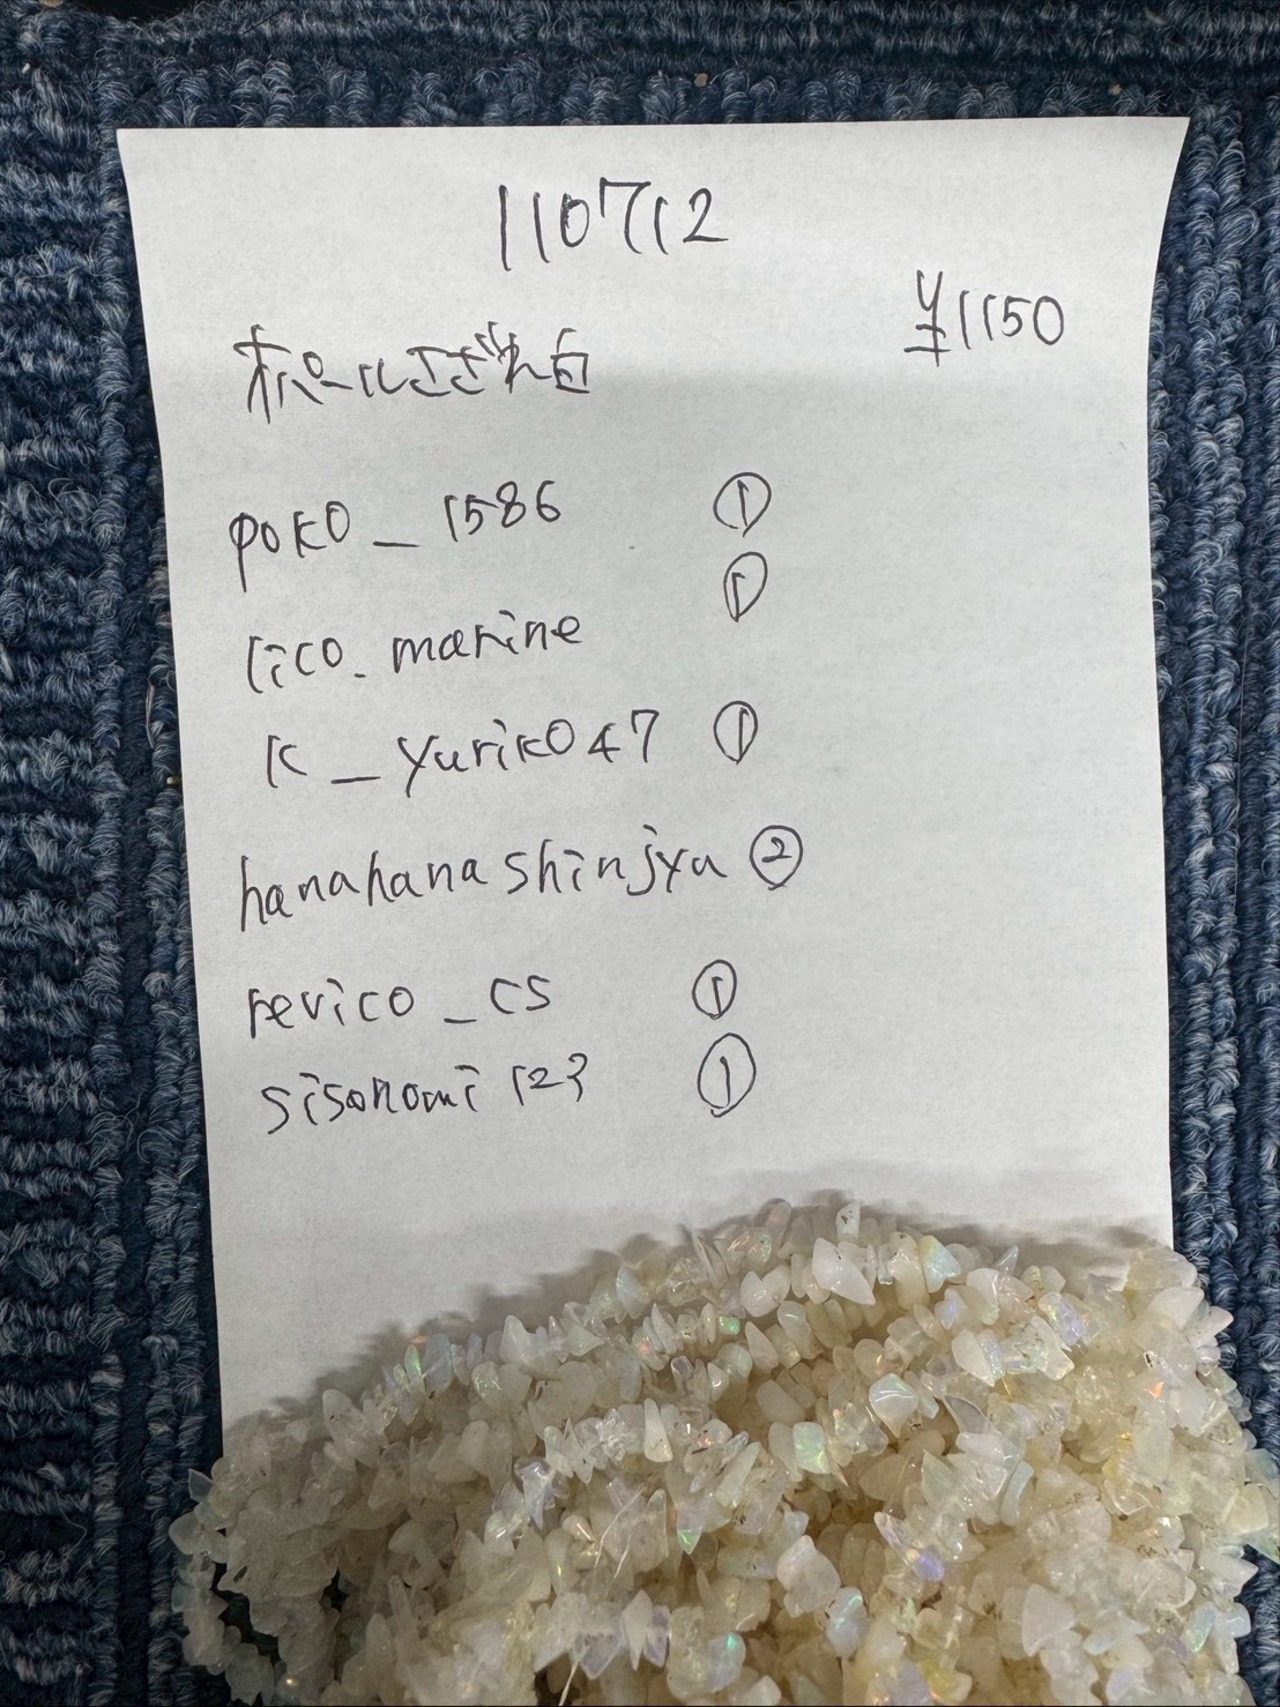 110712
¥1150
オパールさざれ白
poko_1586 ①
①
lico.marine
k_yuriko47 ①
hanahanashinjyu ②
revico_cs ①
sisonomi123 ①